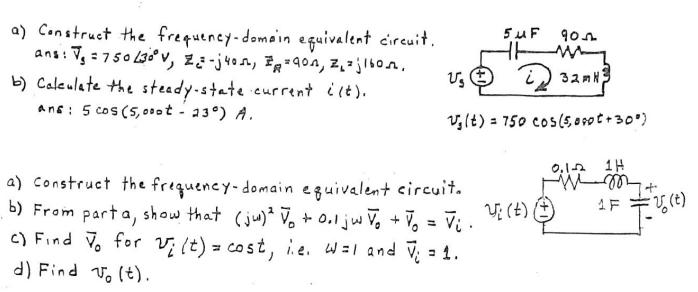 a) Construct the frequency-domain equivalent circuit.
ans: V̄s = 750∠30° V, Zc=-j40Ω, ZR=90Ω, ZL=j160Ω.
b) Calculate the steady-state current i(t).
ans: 5 cos(5,000t - 23°) A.
5uF 90Ω
vs + - i 32mH
vs(t) = 750 cos(5,000t+30°)
a) Construct the frequency-domain equivalent circuit.
b) From part a, show that (jω)² V̄o + 0.1jω V̄o + V̄o = V̄i.
c) Find V̄o for vi(t) = cos t, i.e. ω=1 and V̄i = 1.
d) Find vo(t).
0.1Ω 1H
vi(t) + - 1F + vo(t) -